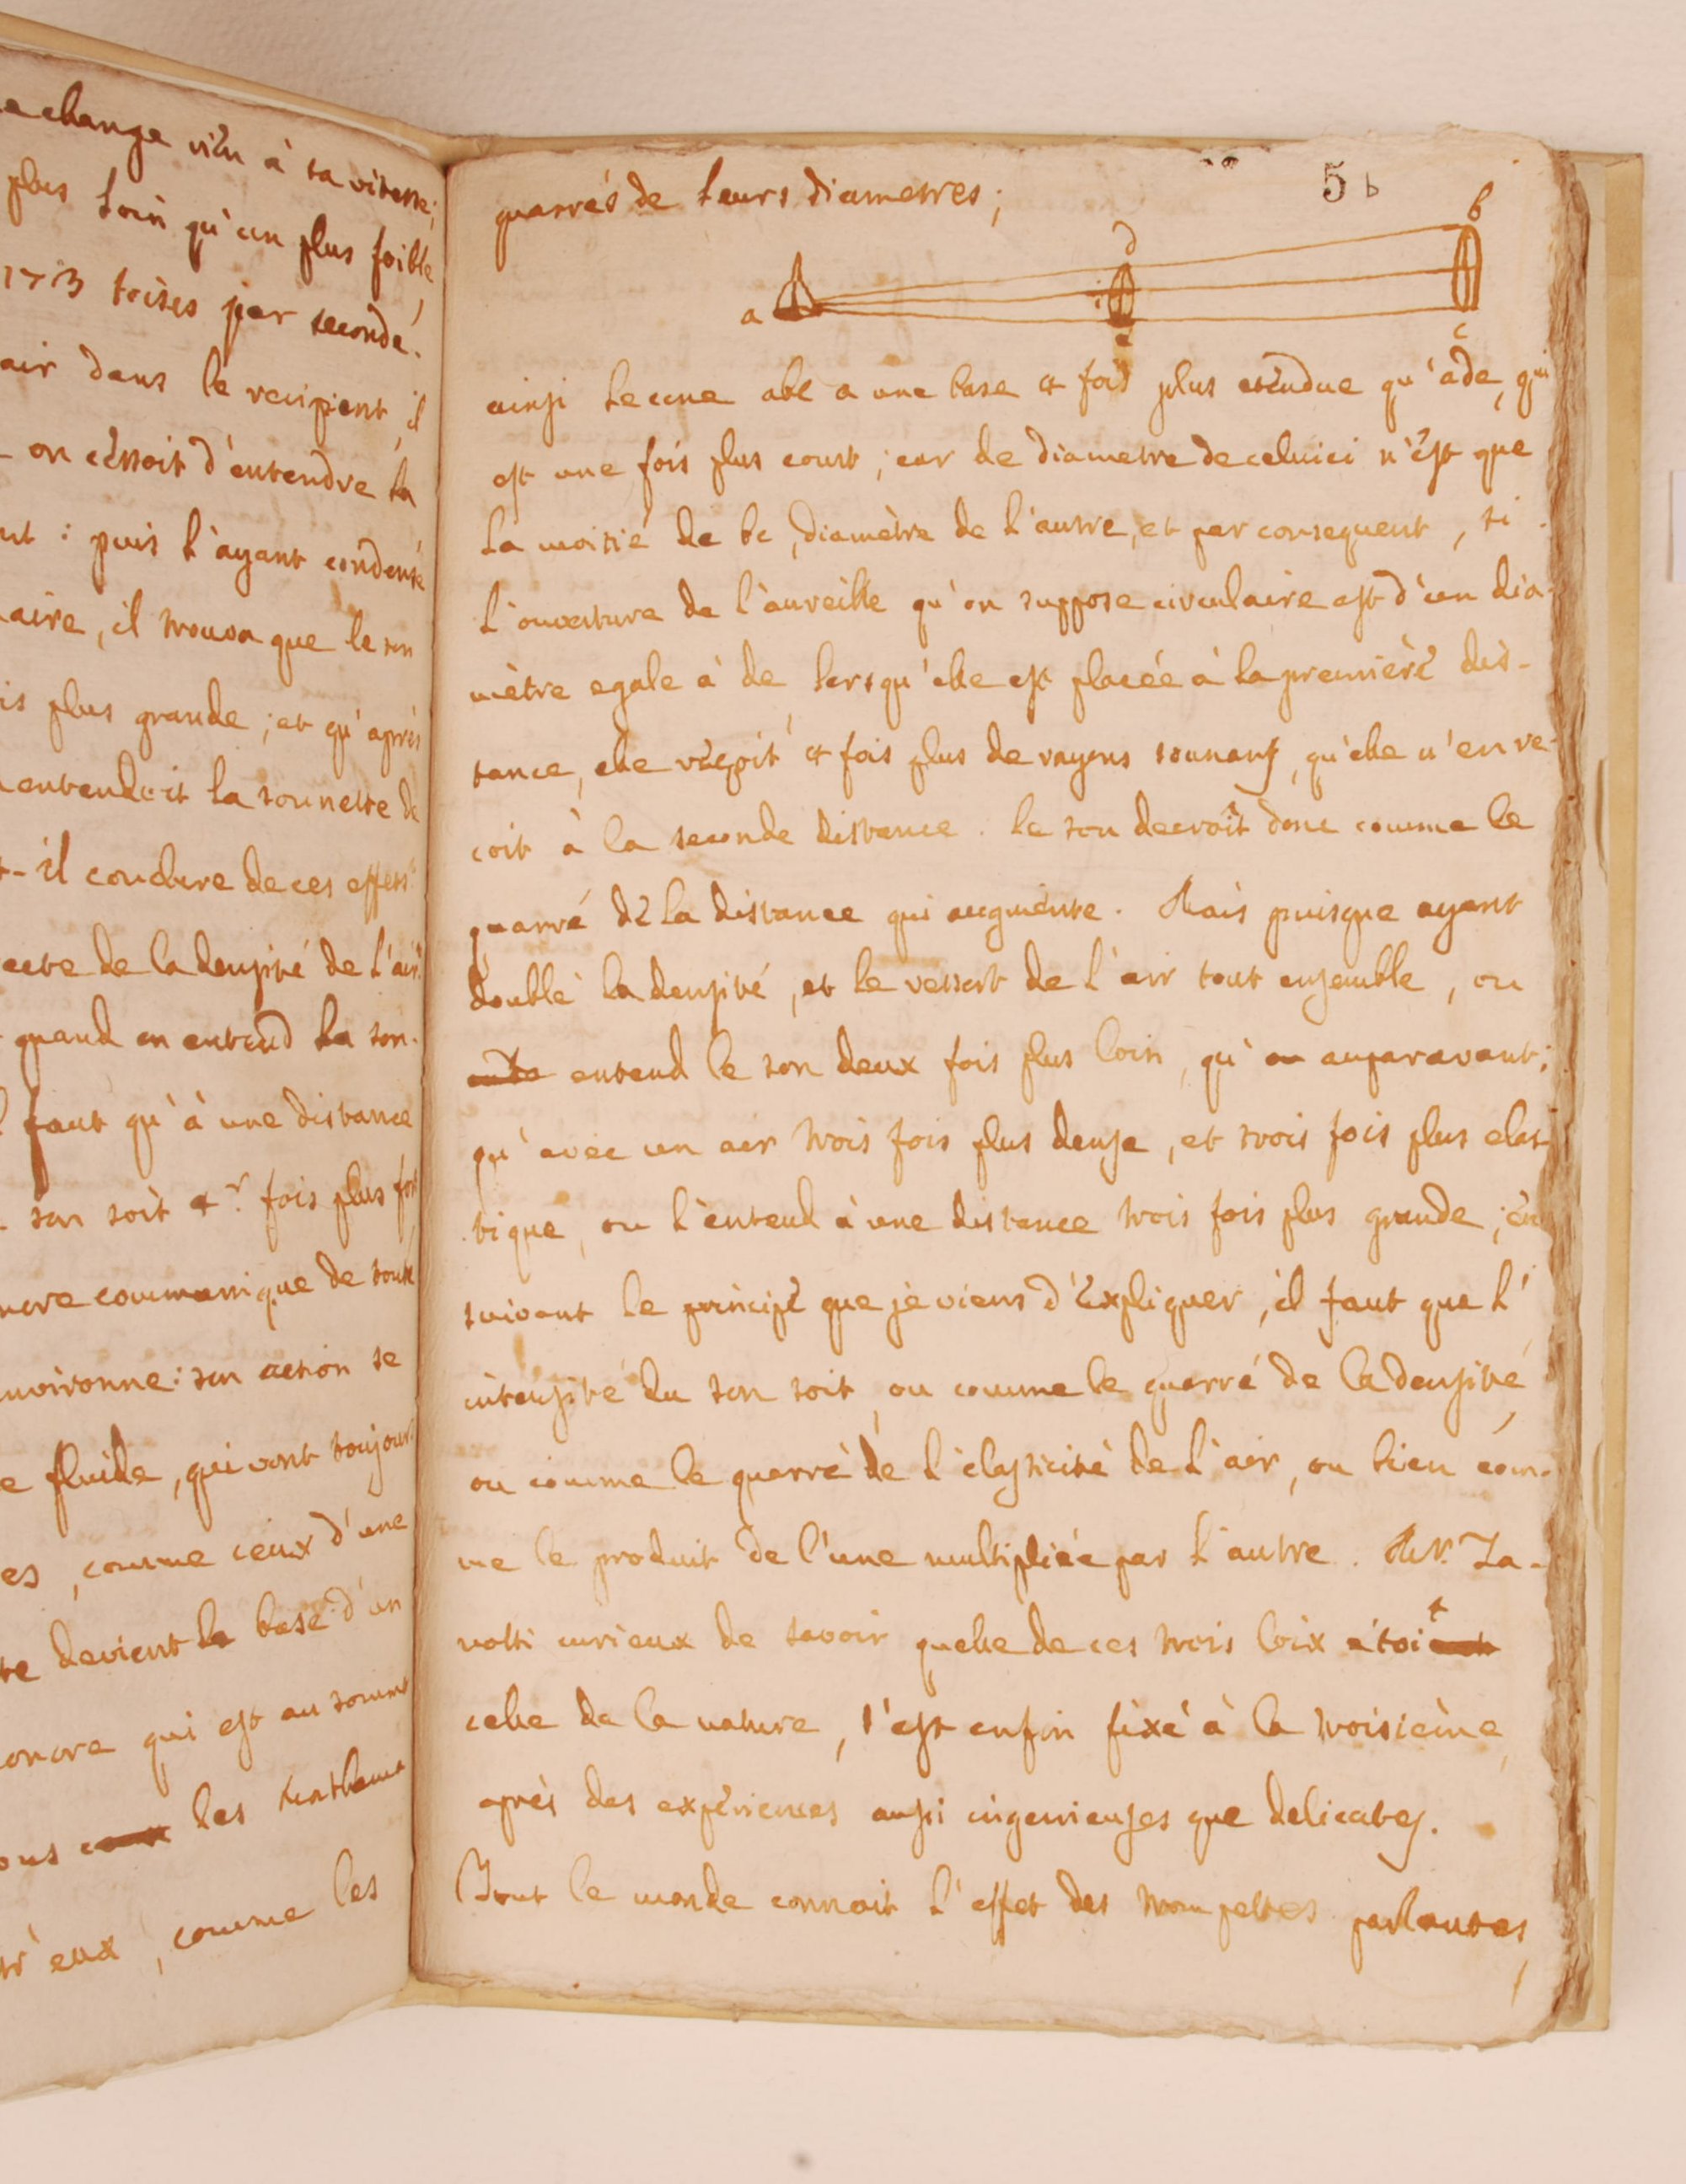 e change rien à sa vitesse;
plus loin qu'un plus foible,
173 toises par seconde.
air dans le recipient, il
on cessoit d'entendre la
nt : puis l'ayant condensé
aire, il trouva que le son
is plus grande; et qu'après
entendoit la sonnette de
t-il conclure de ces effets
ecte de la densité de l'air
quand on entend la son-
faut qu'à une distance
son soit 4 fois plus fort
nore communique de toute
nvironne: son action se
e fluide, qui vont toujours
es, comme ceux d'une
te devient la base d'un
onore qui est au sommet
ous les mathema
tr'eux, comme les
5 b
quarrés de leurs diametres;
a d i e b c
ainsi le cone abc a une base 4 fois plus etendue qu'ade, qui
est une fois plus court; car de diametre de celuici n'est que
la moitié de bc, diamètre de l'autre, et par consequent, si
l'ouverture de l'aureille qu'on suppose circulaire est d'un dia-
mètre egale à de lorsqu'elle est placée à la première dis-
tance, elle reçoit 4 fois plus de rayons sonnans, qu'elle n'en re-
coit à la seconde distance. le son decroît donc comme le
quarré de la distance qui augmente. Mais puisque ayant
doublé la densité, et le ressort de l'air tout ensemble, on
entend le son deux fois plus loin, qu'au auparavant;
qu'avec un aer trois fois plus dense, et trois fois plus elas-
tique, on l'entend à une distance trois fois plus grande; en
suivant le principe que je viens d'expliquer, il faut que l'
intensité du son soit, ou comme le quarré de la densité,
ou comme le quarré de l'élasticité de l'air, ou bien com-
me le produit de l'une multipliée par l'autre. Mr. Za-
notti curieux de savoir quelle de ces trois loix étoit
celle de la nature, s'est enfin fixé à la troisième,
après des expériences aussi ingenieuses que delicates.
Tout le monde connoit l'effet des trompettes parlantes,